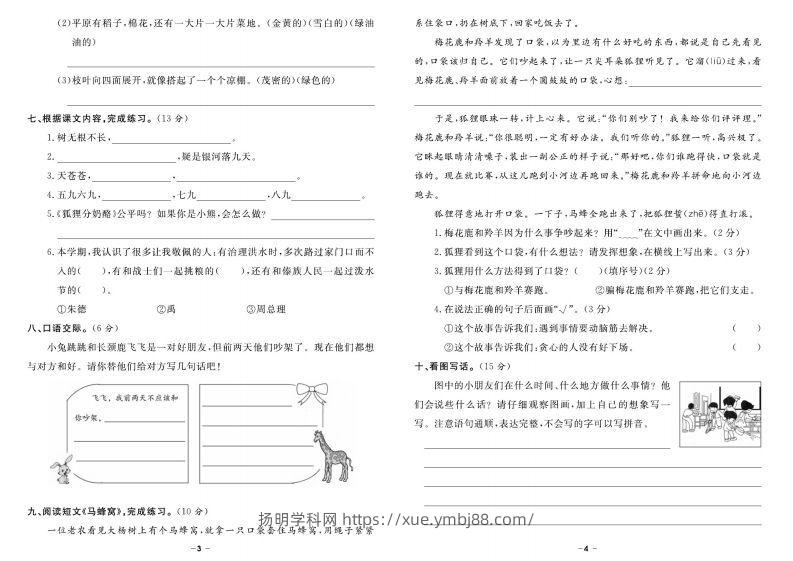 (2)平原有稻子，棉花，还有一大片一大片菜地。(金黄的)(雪白的)(绿油
油的)
(3)枝叶向四面展开，就像搭起了一个个凉棚。(茂密的)(绿色的)
七、根据课文内容，完成练习。(13 分)
1. 树无根不长，____。
2. ____，疑是银河落九天。
3. 天苍苍，____，____。
4. 五九六九，____，七九____，八九____。
5.《狐狸分奶酪》公平吗？如果你是小熊，会怎么做？____
6. 本学期，我认识了很多让我敬佩的人：有治理洪水时，多次路过家门口而不
入的(　　)，有和战士们一起挑粮的(　　)，还有和傣族人民一起过泼水
节的(　　)。
①朱德　②禹　③周总理
八、口语交际。(6 分)
小兔跳跳和长颈鹿飞飞是一对好朋友，但前两天他们吵架了。现在他们都想
与对方和好。请你替他们给对方写几句话吧！
飞飞，我前两天不应该和
你吵架。
九、阅读短文《马蜂窝》，完成练习。(10 分)
一位老农看见大杨树上有个马蜂窝，就拿一只口袋套住马蜂窝，用绳子紧紧
－3－
系住袋口，扔在树底下，回家吃饭去了。
梅花鹿和羚羊发现了口袋，以为里边有什么好吃的东西，都说是自己先看见
的，口袋该归自己。它们吵起来了，让一只尖耳朵狐狸听见了。它溜(liū)过来，看
见梅花鹿、羚羊面前放着一个圆鼓鼓的口袋，心想：____
于是，狐狸眼珠一转，计上心来。它说：“你们别吵了！我来给你们评评理。”
梅花鹿和羚羊说：“你很聪明，一定有好办法。我们听你的。”狐狸一听，高兴极了。
它眯起眼睛清清嗓子，装出一副公正的样子说：“那好吧，你们谁跑得快，口袋就是
谁的。现在就比赛，从这儿跑到小河边再跑回来。”梅花鹿和羚羊拼命地向小河边
跑去。
狐狸得意地打开口袋。一下子，马蜂全跑出来了，把狐狸蜇(zhē)得直打滚。
1. 梅花鹿和羚羊因为什么事争吵起来？用“____”在文中画出来。(2 分)
2. 狐狸看到这个口袋，有什么想法？请发挥想象，在横线上写出来。(3 分)
3. 狐狸用什么方法得到了口袋？(　　)(填序号)(2 分)
①与梅花鹿和羚羊赛跑。　②骗梅花鹿和羚羊赛跑，把它们支走。
4. 在说法正确的句子后面画“√”。(3 分)
①这个故事告诉我们：遇到事情要动脑筋去解决。(　　)
②这个故事告诉我们：贪心的人没有好下场。(　　)
十、看图写话。(15 分)
图中的小朋友们在什么时间、什么地方做什么事情？他
们会说些什么话？请仔细观察图画，加上自己的想象写一
写。注意语句通顺，表达完整，不会写的字可以写拼音。
－4－
扬明学科网 https://xue.ymbj88.com/